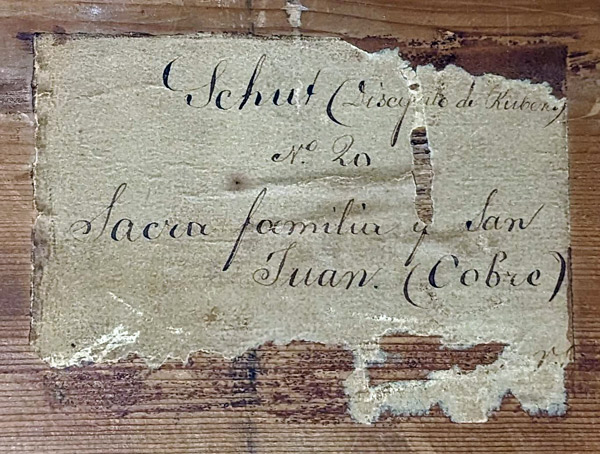 Schut (Discipulo de Rubens)
Nº 20
Sacra familia y San
Juan. (Cobre)